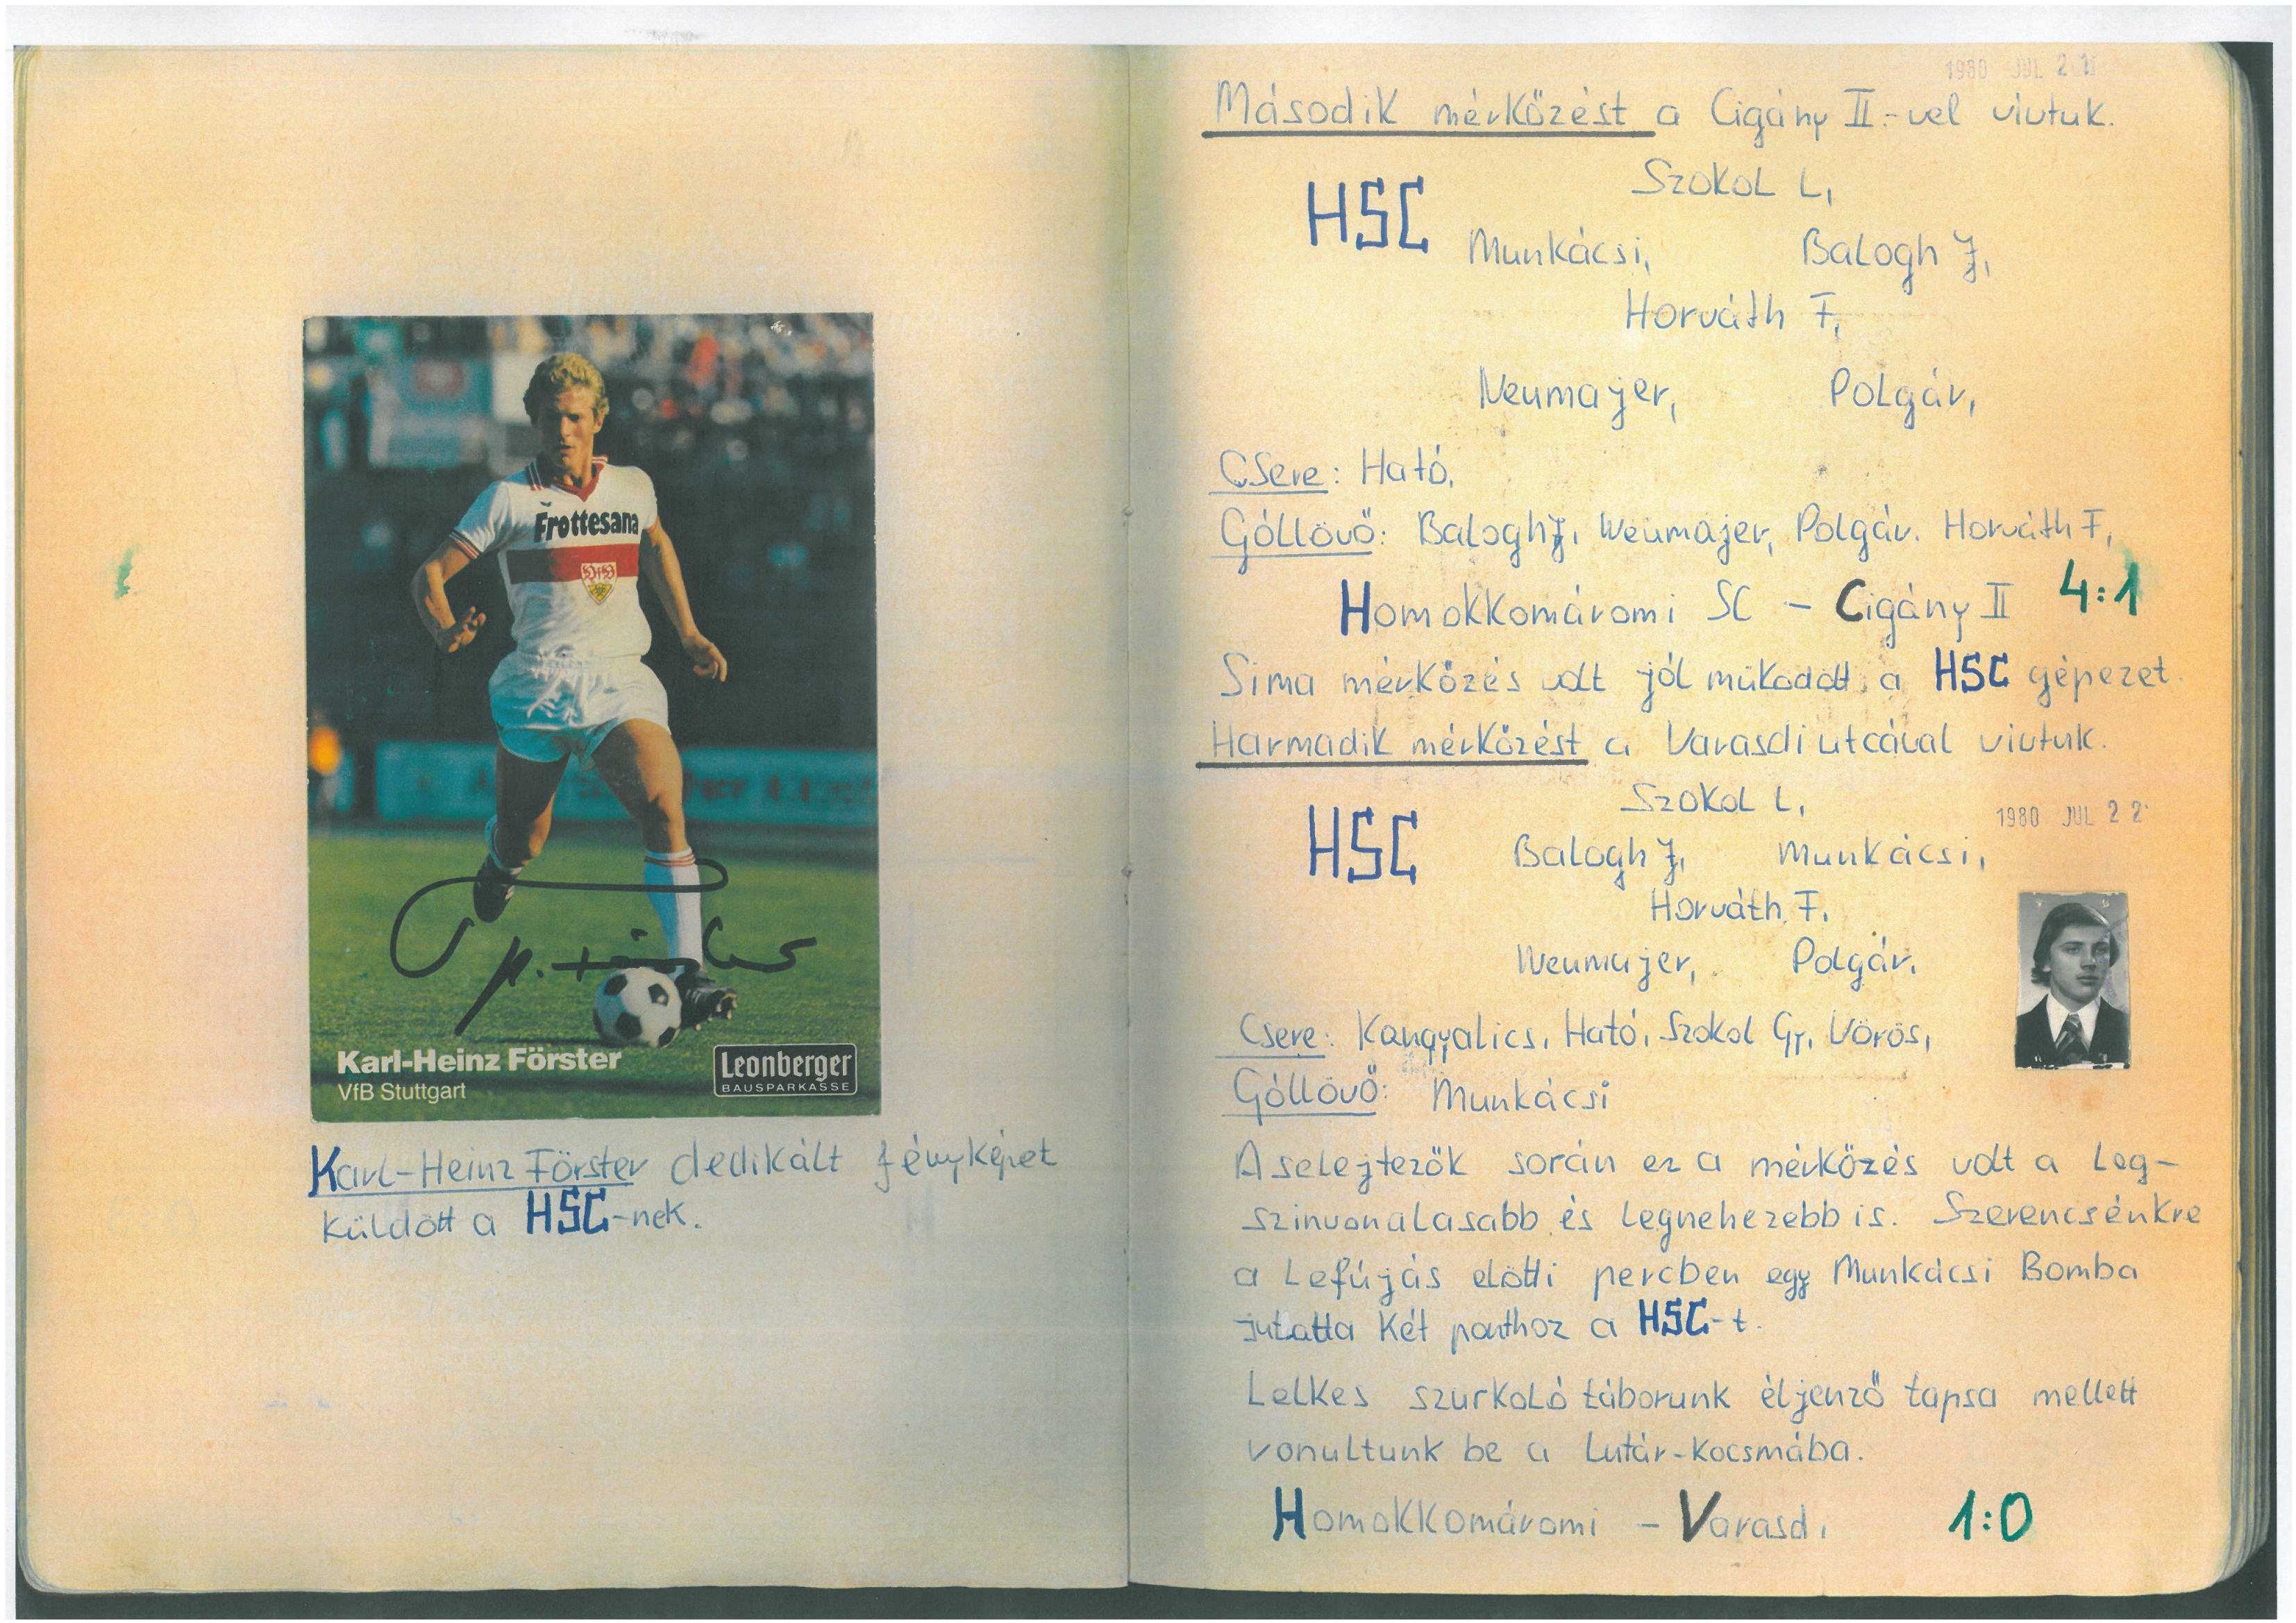 Frottesana
VfB
Karl-Heinz Förster
VfB Stuttgart
Leonberger
BAUSPARKASSE
Karl-Heinz Förster dedikált fényképet
küldött a HSC-nek.
1980 JUL 2
Második mérkőzést a Cigány II.-vel vivtuk.
Szokol L,
HSC
Munkácsi, Balogh J,
Horváth F,
Neumajer, Polgár,
Csere: Ható,
Góllövő: Balogh J, Neumajer, Polgár. Horváth F,
Homokkomáromi SC - Cigány II 4:1
Sima mérkőzés volt jól müködött a HSC gépezet.
Harmadik mérkőzést a Varasdi utcával vivtuk.
Szokol L,
1980 JUL 22
HSC
Balogh J, Munkácsi,
Horváth F.
Neumajer, Polgár.
Csere: Kangyalics, Ható, Szokol Gy, Vörös,
Góllövő: Munkácsi
A selejtezők során ez a mérkőzés volt a leg-
szinvonalasabb és legnehezebb is. Szerencsénkre
a lefújás elötti percben egy Munkácsi Bomba
jutatta két ponthoz a HSC-t.
Lelkes szurkoló táborunk éljenző tapsa mellett
vonultunk be a Lutár-kocsmába.
Homokkomáromi - Varasdi 1:0